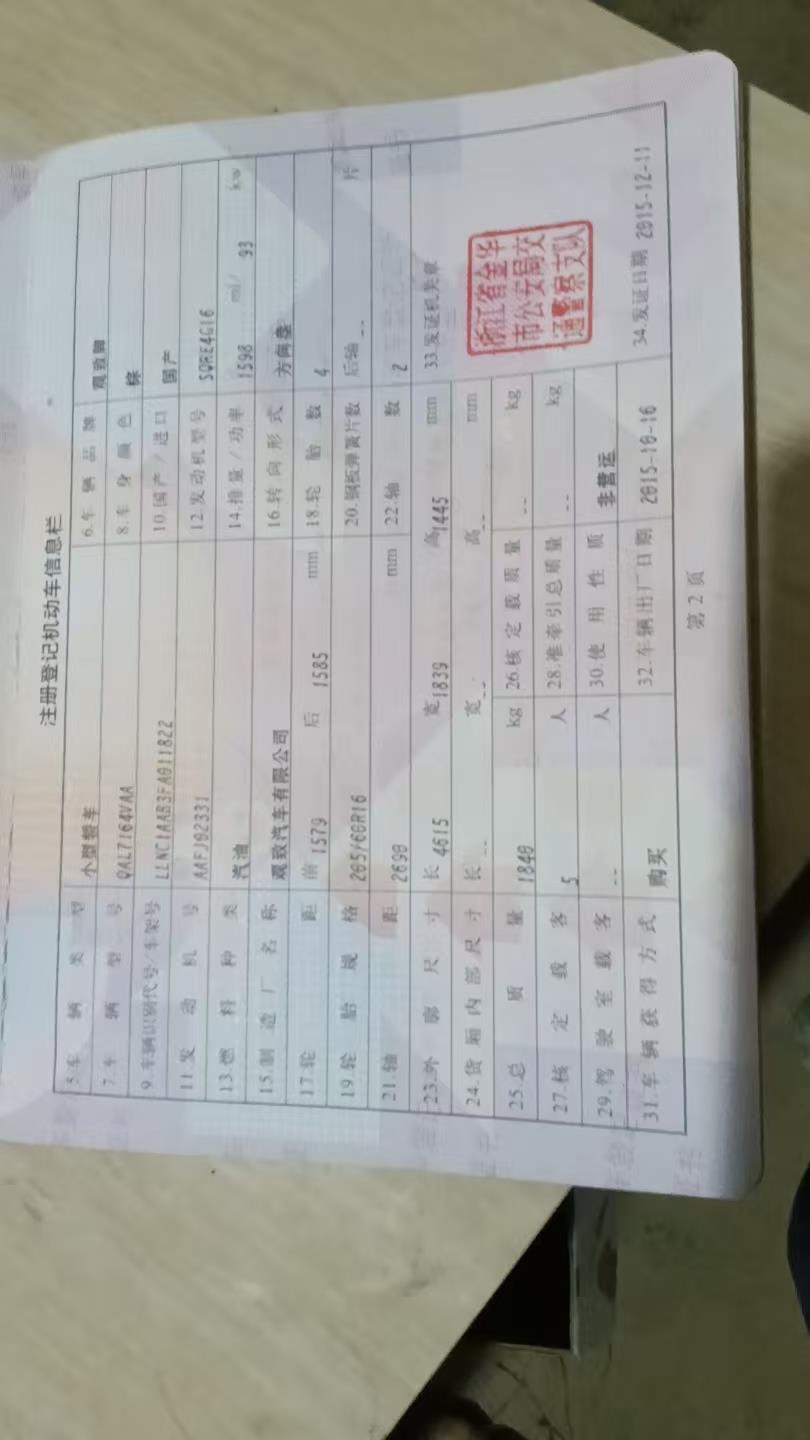 注册登记机动车信息栏
5.车辆类型 小型轿车 6.车辆品牌 观致牌
7.车辆型号 QAL7164VAA 8.车身颜色 棕
9.车辆识别代号/车架号 LLNC1AAB3FA011822 10.国产/进口 国产
11.发动机号 AAFJ02331 12.发动机型号 SQRE4G16
13.燃料种类 汽油 14.排量/功率 1598 ml/ 93 kw
15.制造厂名称 观致汽车有限公司 16.转向形式 方向盘
17.轮距 前 1579 后 1585 mm 18.轮胎数 4
19.轮胎规格 205/60R16 20.钢板弹簧片数 后轴 -- 片
21.轴距 2690 mm 22.轴数 2
23.外廓尺寸 长 4615 宽 1839 高 1445 mm 33.发证机关章
24.货厢内部尺寸 长 -- 宽 -- 高 -- mm
25.总质量 1840 kg 26.核定载质量 -- kg
27.核定载客 5 人 28.准牵引总质量 -- kg
浙江省金华
市公安局交
通警察支队
29.驾驶室载客 -- 人 30.使用性质 非营运
31.车辆获得方式 购买 32.车辆出厂日期 2015-10-16 34.发证日期 2015-12-11
第 2 页